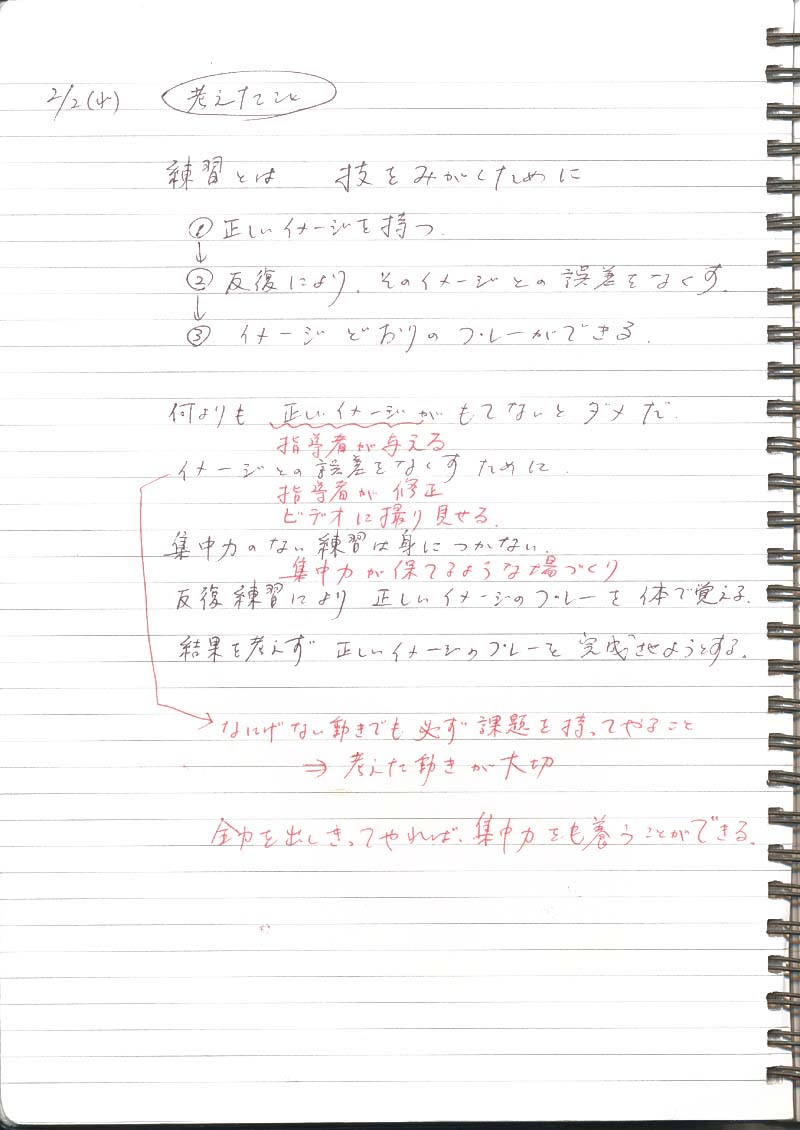 2/2(水) 考えたこと
練習とは 技をみがくために
① 正しいイメージを持つ.
↓
② 反復により、そのイメージとの誤差をなくす.
↓
③ イメージどおりのプレーができる.
何よりも 正しいイメージがもてないとダメだ.
指導者が与える
イメージとの誤差をなくすために.
指導者が修正
ビデオに撮り見せる.
集中力のない練習は身につかない.
集中力が保てるような場づくり
反復練習により 正しいイメージのプレーを体で覚える.
結果を考えず 正しいイメージのプレーを完成させようとする.
→なにげない動きでも必ず課題を持ってやること
⇒ 考えた動きが大切
全力を出しきってやれば、集中力をも養うことができる.